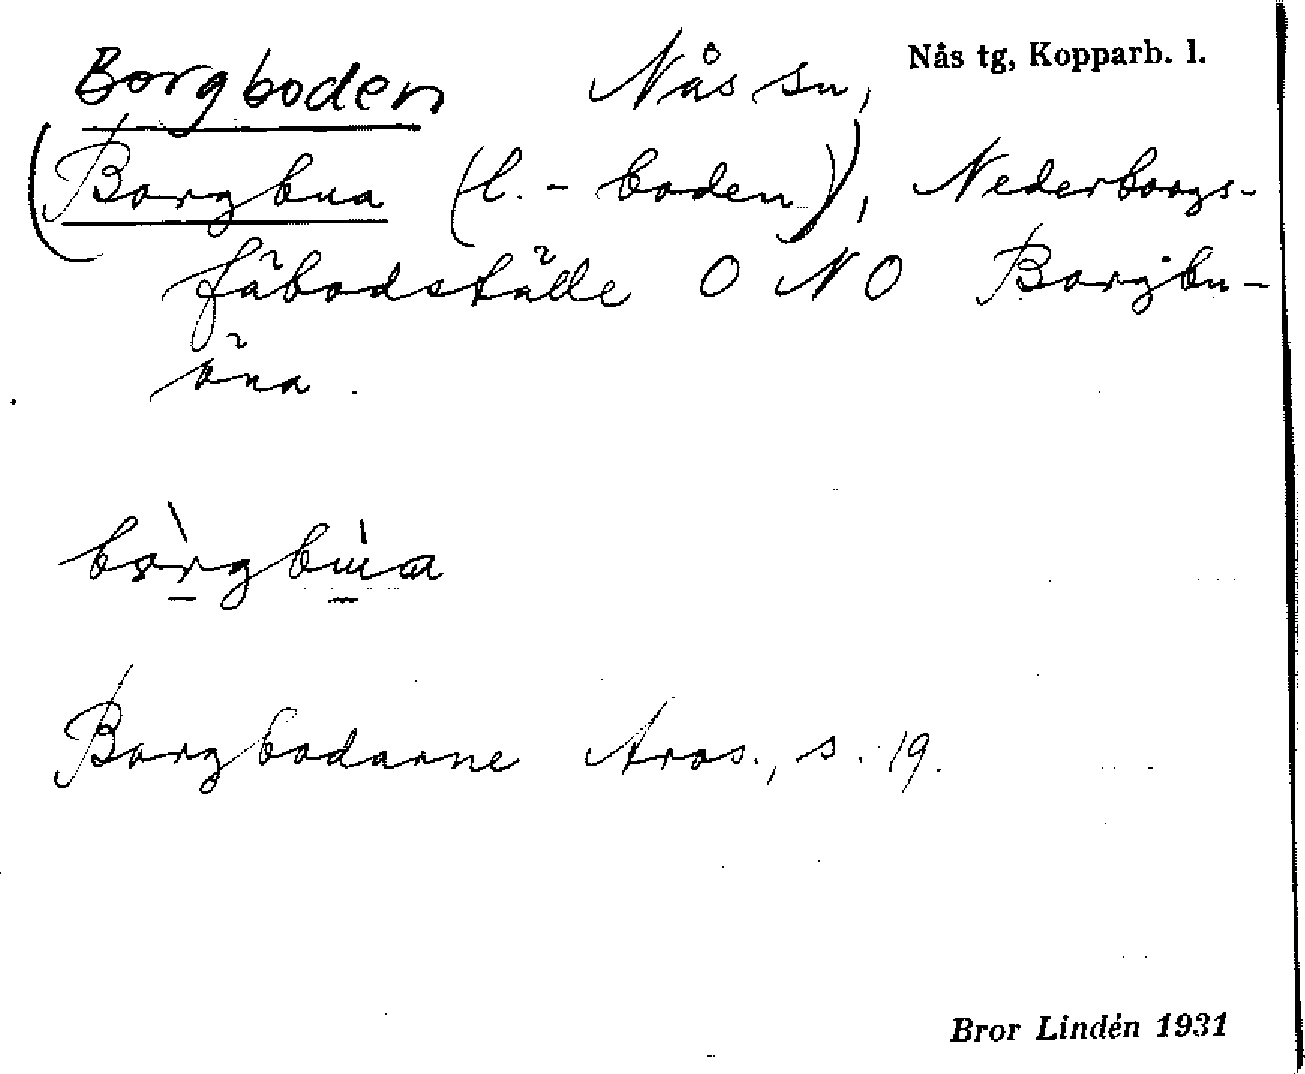 Borgboden Nås sn, Nås tg, Kopparb. l.
(Borgbua (l. -boden)), Nederborgs-
fäbodställe ONO Borgbu-
öna.
bòrgbúa
Borgbodarne Aros., s. 19.
Bror Lindén 1931